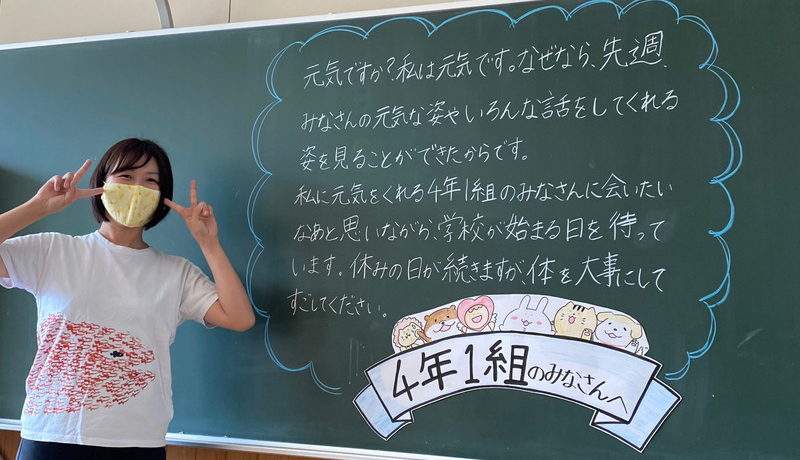 元気ですか?私は元気です。なぜなら、先週、
みなさんの元気な姿やいろんな話をしてくれる
姿を見ることができたからです。
私に元気をくれる4年1組のみなさんに会いたい
なあと思いながら、学校が始まる日を待って
います。休みの日が続きますが、体を大事にして
すごしてください。
4年1組のみなさんへ